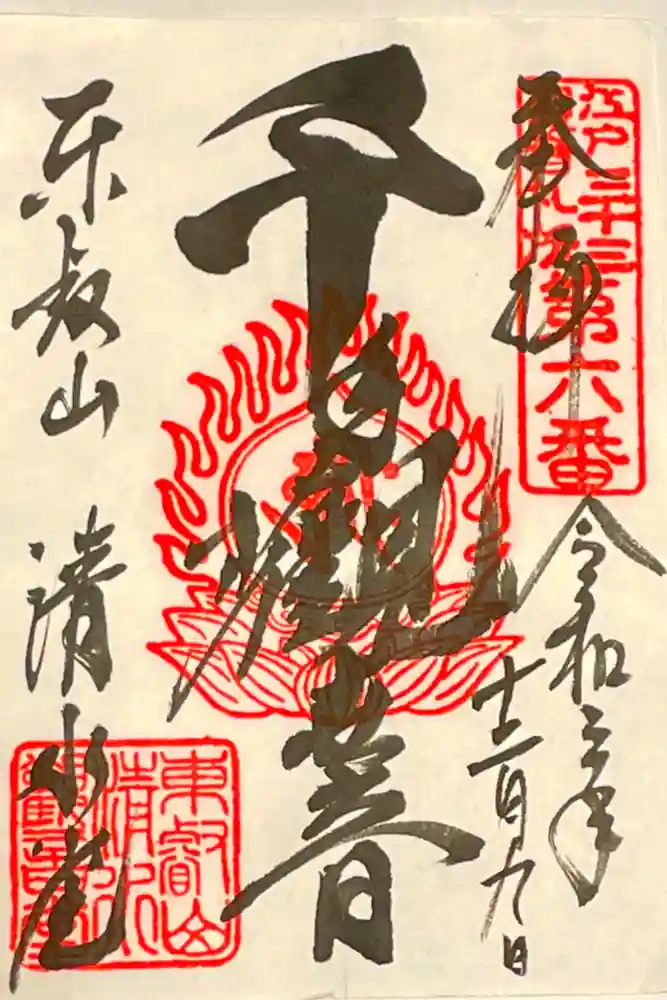 奉拝
江戸三十三
札所第六番
令和三年
十二月九日
千手観世音
東叡山 清水堂
東叡山
清水